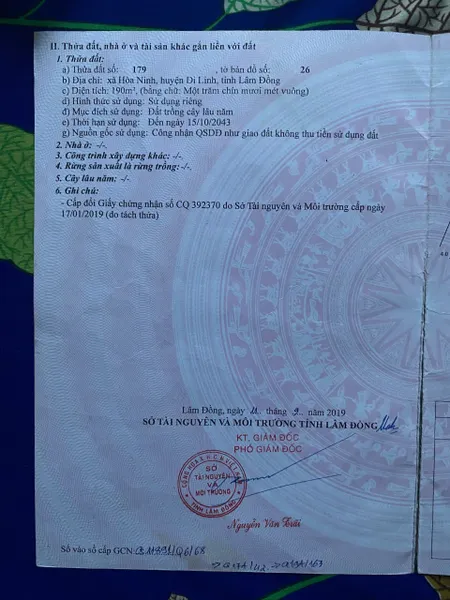 II. Thửa đất, nhà ở và tài sản khác gắn liền với đất
1. Thửa đất:
a) Thửa đất số: 179 , tờ bản đồ số: 26
b) Địa chỉ: xã Hòa Ninh, huyện Di Linh, tỉnh Lâm Đồng
c) Diện tích: 190m², (bằng chữ: Một trăm chín mươi mét vuông)
d) Hình thức sử dụng: Sử dụng riêng
đ) Mục đích sử dụng: Đất trồng cây lâu năm
e) Thời hạn sử dụng: Đến ngày 15/10/2043
g) Nguồn gốc sử dụng: Công nhận QSDĐ như giao đất không thu tiền sử dụng đất
2. Nhà ở: -/-.
3. Công trình xây dựng khác: -/-.
4. Rừng sản xuất là rừng trồng: -/-.
5. Cây lâu năm: -/-.
6. Ghi chú:
- Cấp đổi Giấy chứng nhận số CQ 392370 do Sở Tài nguyên và Môi trường cấp ngày
17/01/2019 (do tách thửa)
Lâm Đồng, ngày 11 tháng 9 năm 2019
SỞ TÀI NGUYÊN VÀ MÔI TRƯỜNG TỈNH LÂM ĐỒNG
KT. GIÁM ĐỐC
PHÓ GIÁM ĐỐC
CỘNG HÒA X.H.C.N VIỆT NAM
SỞ
TÀI NGUYÊN
VÀ
MÔI TRƯỜNG
TỈNH LÂM ĐỒNG
Nguyễn Văn Trãi
Số vào sổ cấp GCN:
4.0